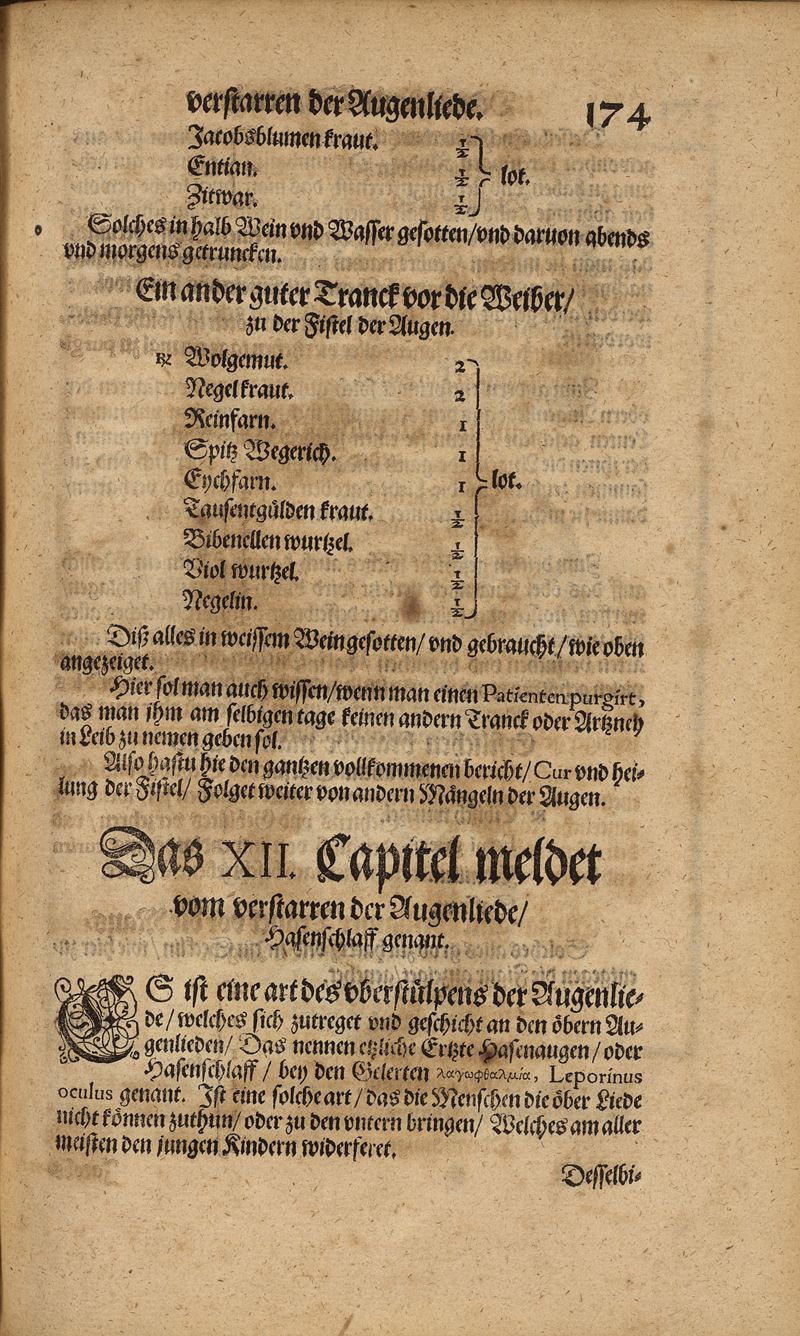 verstarren der Augenliede. 174
Jacobsblumen kraut. ½
Entian. ½ lot.
Zitwar. ½
Solches in halb Wein vnd Wasser gesotten/vnd daruon abends
vnd morgens getruncken.
Ein ander guter Tranck vor die Weiber/
zu der Fistel der Augen.
℞ Wolgemut. 2
Negelkraut. 2
Reinfarn. 1
Spitz Wegerich. 1
Eychfarn. 1 lot.
Tausentgůlden kraut. ½
Bibenellen wurtzel. ½
Viol wurtzel. ½
Negelin. ½
Diß alles in weissem Wein gesotten/ vnd gebraucht/ wie oben
angezeiget.
Hier sol man auch wissen/wenn man einen Patienten purgirt,
das man ihm am selbigen tage keinen andern Tranck oder Artzney
in Leib zu nemen geben sol.
Also hastu hie den gantzen vollkommenen bericht/ Cur vnd hei-
lung der Fistel/ Folget weiter von andern Mängeln der Augen.
Das XII. Capitel meldet
vom verstarren der Augenliede/
Hasenschlaff genant.
ES ist eine art des vberstůlpens der Augenlie-
de/ welches sich zutreget vnd geschicht an den öbern Au-
genlieden/ Das nennen etzliche Ertzte Hasenaugen/ oder
Hasenschlaff/ bey den Gelerten λαγωφθαλμία, Leporinus
oculus genant. Ist eine solche art/ das die Menschen die öber Liede
nicht können zuthun/ oder zu den vntern bringen/ Welches am aller
meisten den jungen Kindern widerferet.
Desselbi-